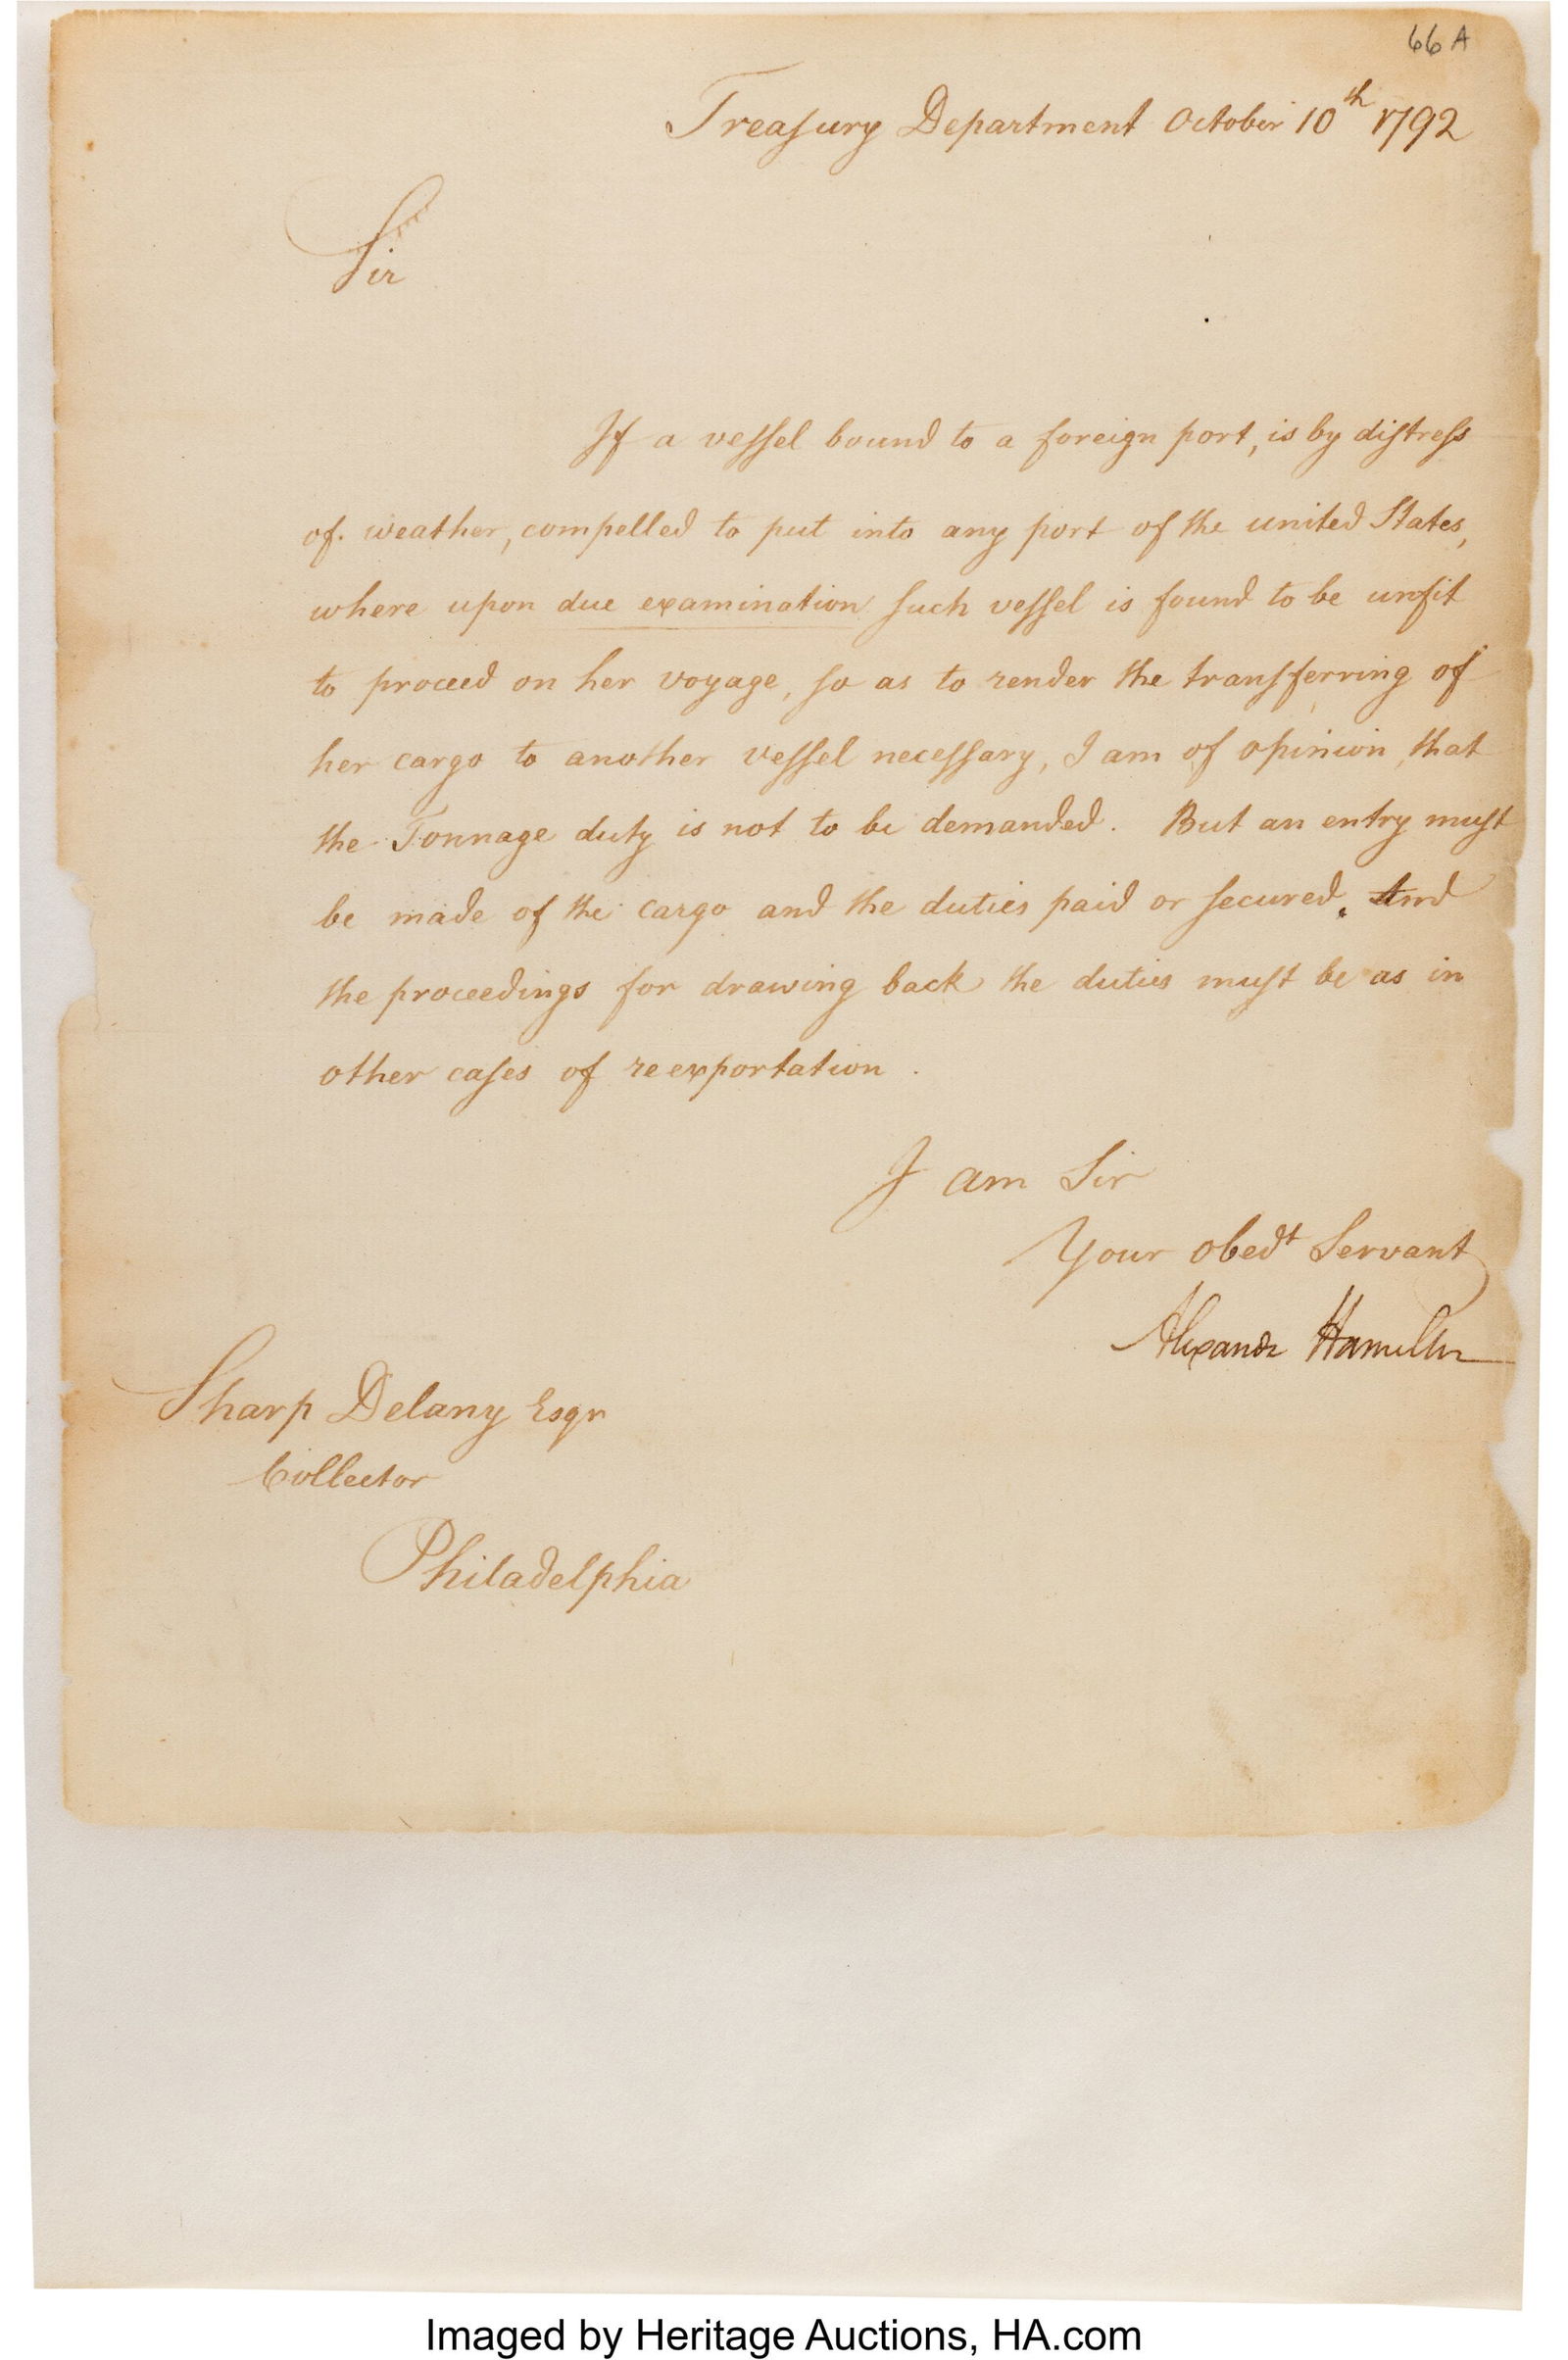 66 A
Treasury Department October 10th 1792
Sir
If a vessel bound to a foreign port, is by distress
of weather, compelled to put into any port of the united States,
where upon due examination such vessel is found to be unfit
to proceed on her voyage, so as to render the transferring of
her cargo to another vessel necessary, I am of opinion, that
the Tonnage duty is not to be demanded. But an entry must
be made of the cargo and the duties paid or secured. And
the proceedings for drawing back the duties must be as in
other cases of reexportation.
I am Sir
Your obedt Servant
Alexandr Hamilton
Sharp Delany Esqr
Collector
Philadelphia
Imaged by Heritage Auctions, HA.com